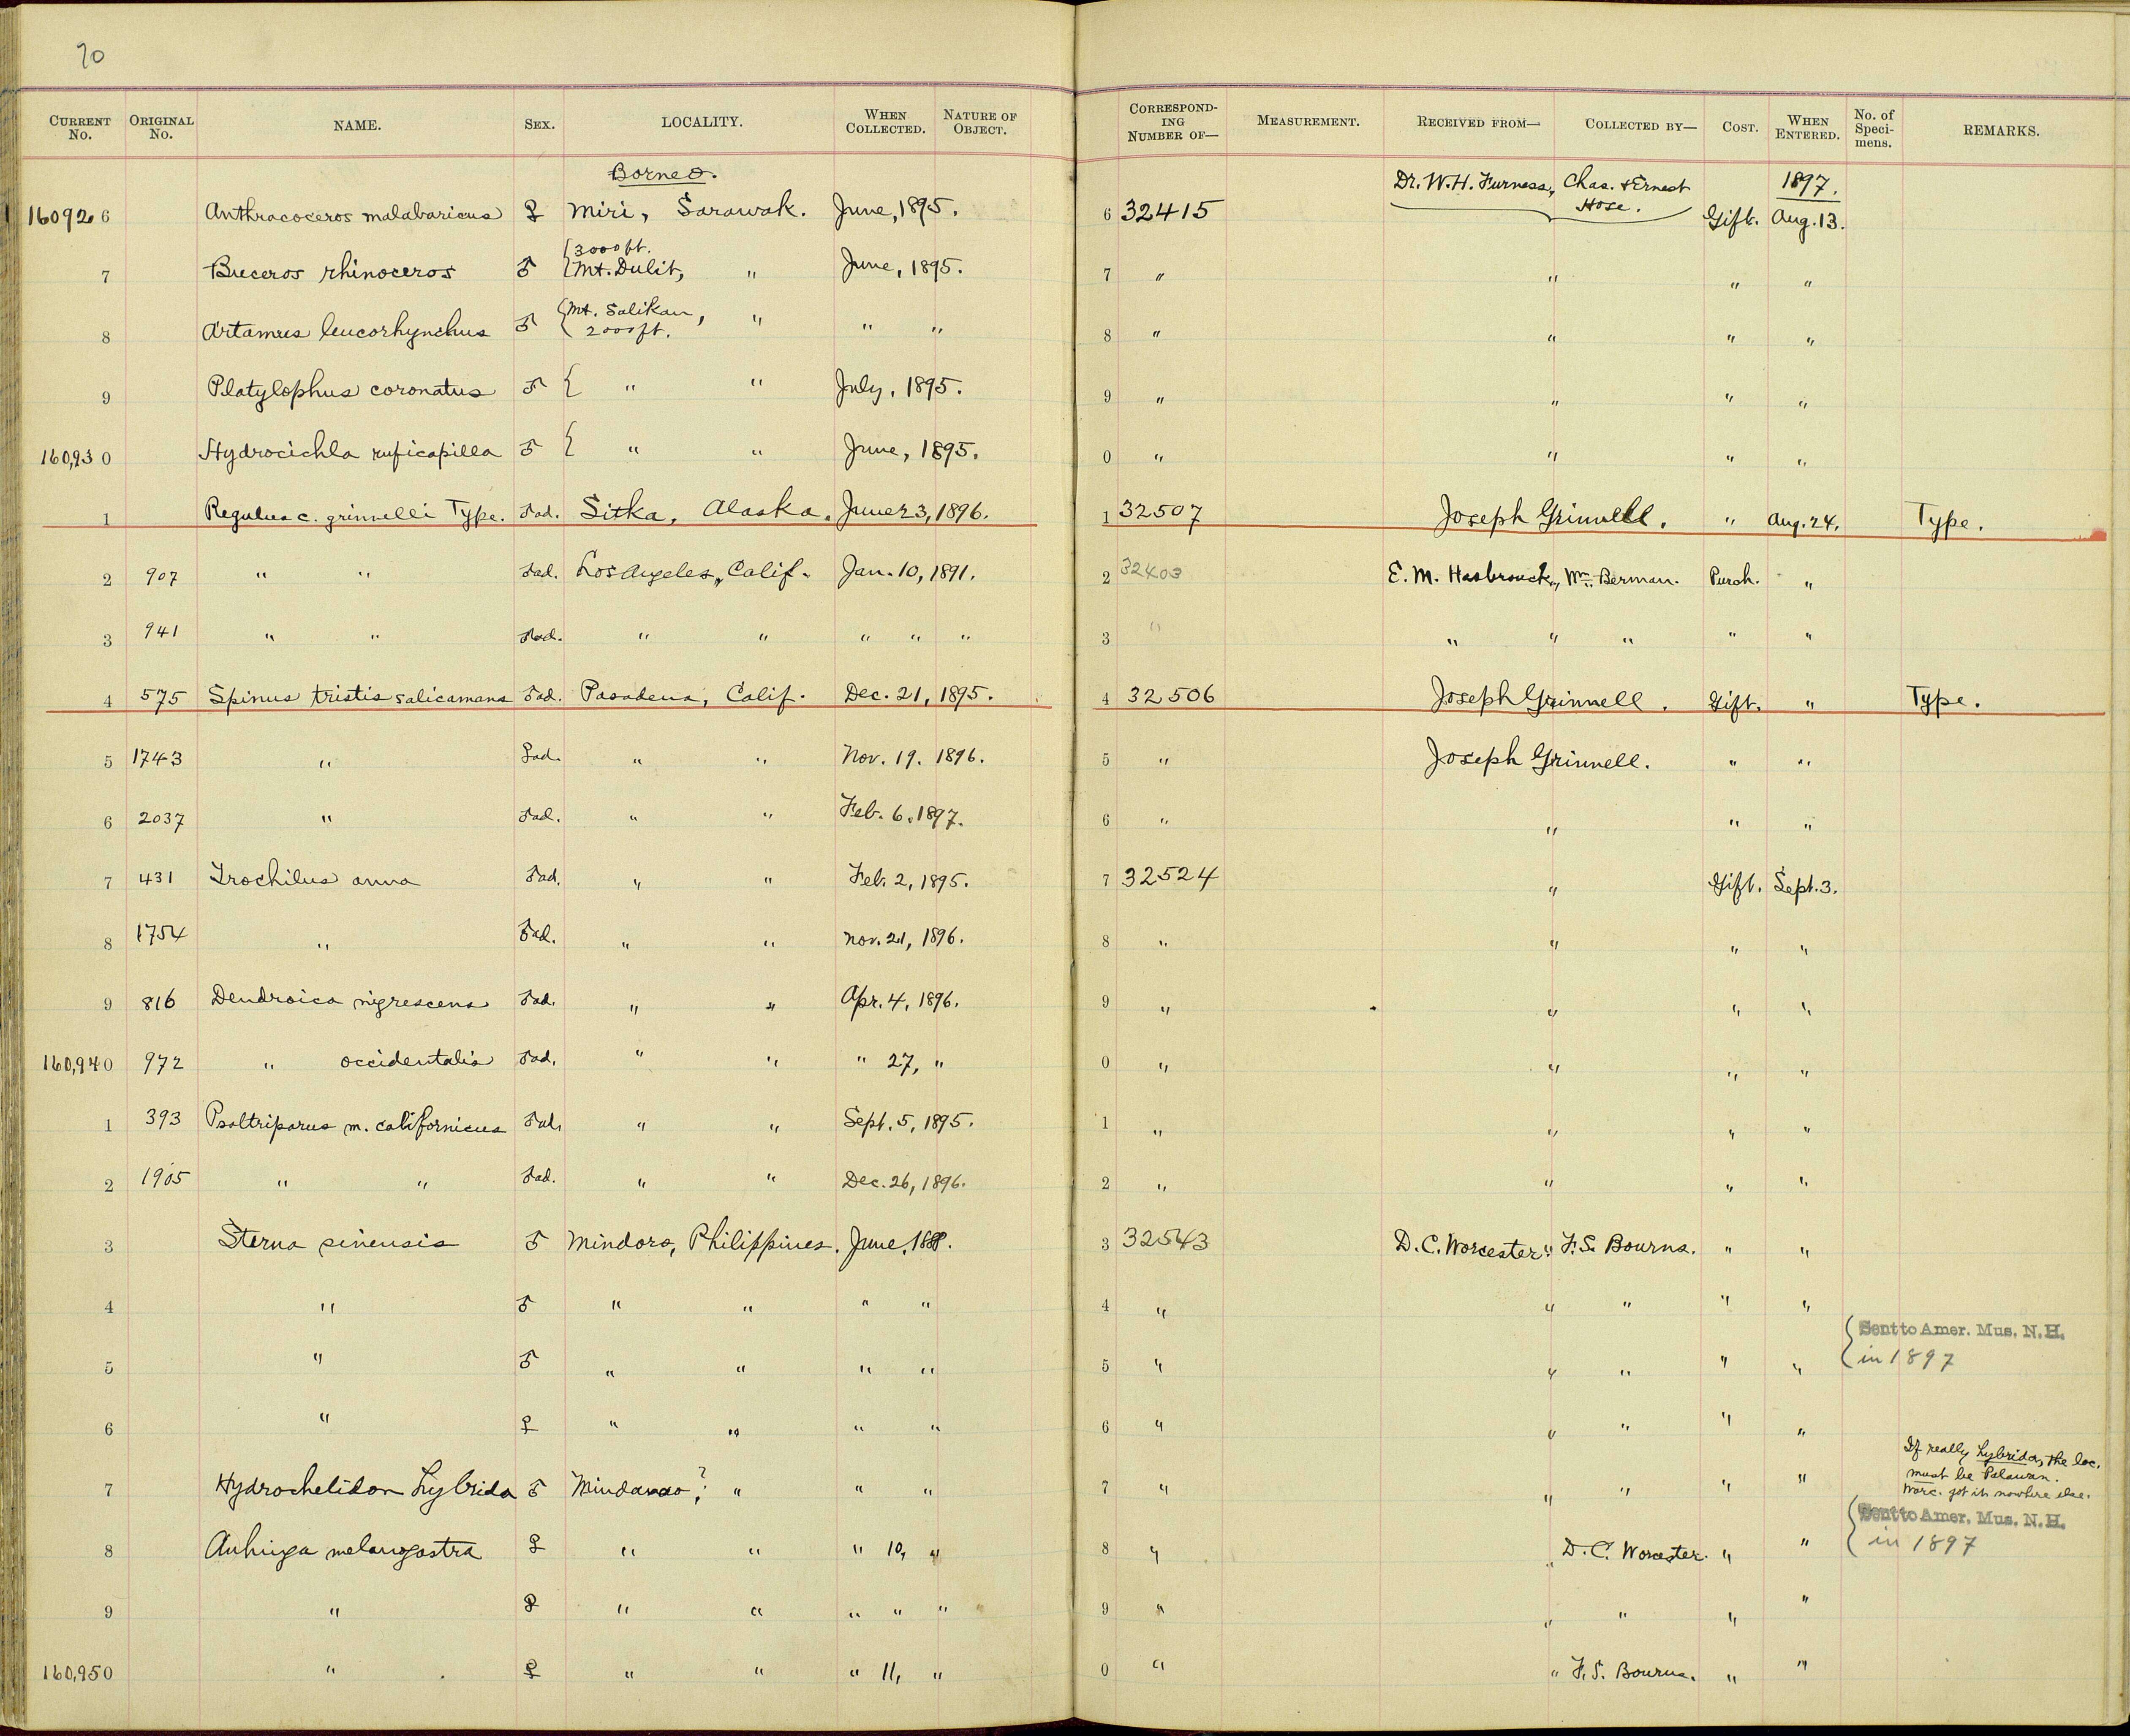 70
CURRENT No. ORIGINAL No. NAME. SEX. LOCALITY. WHEN COLLECTED. NATURE OF OBJECT. CORRESPONDING NUMBER OF— MEASUREMENT. RECEIVED FROM— COLLECTED BY— COST. WHEN ENTERED. No. of Specimens. REMARKS.
Borneo. 1897.
160926 Anthracoceros malabaricus ♀ Miri, Sarawak. June, 1895. 6 32415 Dr. W.H. Furness, Chas. & Ernest Hose. Gift. Aug. 13.
7 Buceros rhinoceros ♂ {3000 ft. Mt. Dulit, " June, 1895. 7 " " " "
8 Artamus leucorhynchus ♂ {Mt. Salikan, 2000 ft. " " " 8 " " " "
9 Platylophus coronatus ♂ { " " July, 1895. 9 " " " "
160,930 Hydrocichla ruficapilla ♂ { " " June, 1895. 0 " " " "
1 Regulus c. grinnelli Type. ♂ad. Sitka, Alaska. June 23, 1896. 1 32507 Joseph Grinnell. " Aug. 24. Type.
2 907 " " ♂ad. Los Angeles, Calif. Jan. 10, 1891. 2 32403 E. M. Hasbrouck, Wm. Berman. Purch. "
3 941 " " ♂ad. " " " " " 3 " " " " " "
4 575 Spinus tristis salicamans ♂ad. Pasadena, Calif. Dec. 21, 1895. 4 32506 Joseph Grinnell. Gift. " Type.
5 1743 " ♀ad. " " Nov. 19. 1896. 5 " Joseph Grinnell. " "
6 2037 " ♂ad. " " Feb. 6. 1897. 6 " " " "
7 431 Trochilus anna ♂ad. " " Feb. 2, 1895. 7 32524 " Gift. Sept. 3.
8 1754 " ♂ad. " " Nov. 21, 1896. 8 " " " "
9 816 Dendroica nigrescens ♂ad. " " Apr. 4, 1896. 9 " " " "
160,940 972 " occidentalis ♂ad. " " " 27, " 0 " " " "
1 393 Psaltriparus m. californicus ♂ad. " " Sept. 5, 1895. 1 " " " "
2 1905 " " ♂ad. " " Dec. 26, 1896. 2 " " " "
3 Sterna sinensis ♂ Mindoro, Philippines. June, 1888. 3 32543 D. C. Worcester " F. S. Bourns. " "
4 " ♂ " " " " 4 " " " " "
5 " ♂ " " " " 5 " " " " " {Sent to Amer. Mus. N.H.
in 1897
6 " ♀ " " " " 6 " " " " "
7 Hydrochelidon hybrida ♂ Mindanao?, " " " 7 " " " " " If really hybrida, the loc.
must be Palawan.
Worc. got it nowhere else.
8 Anhinga melanogastra ♀ " " " 10, " 8 " " D. C. Worcester. " " {Sent to Amer. Mus. N.H.
in 1897
9 " ♀ " " " " " 9 " " " " "
160,950 " ♀ " " " 11, " 0 " " F. S. Bourns. " "